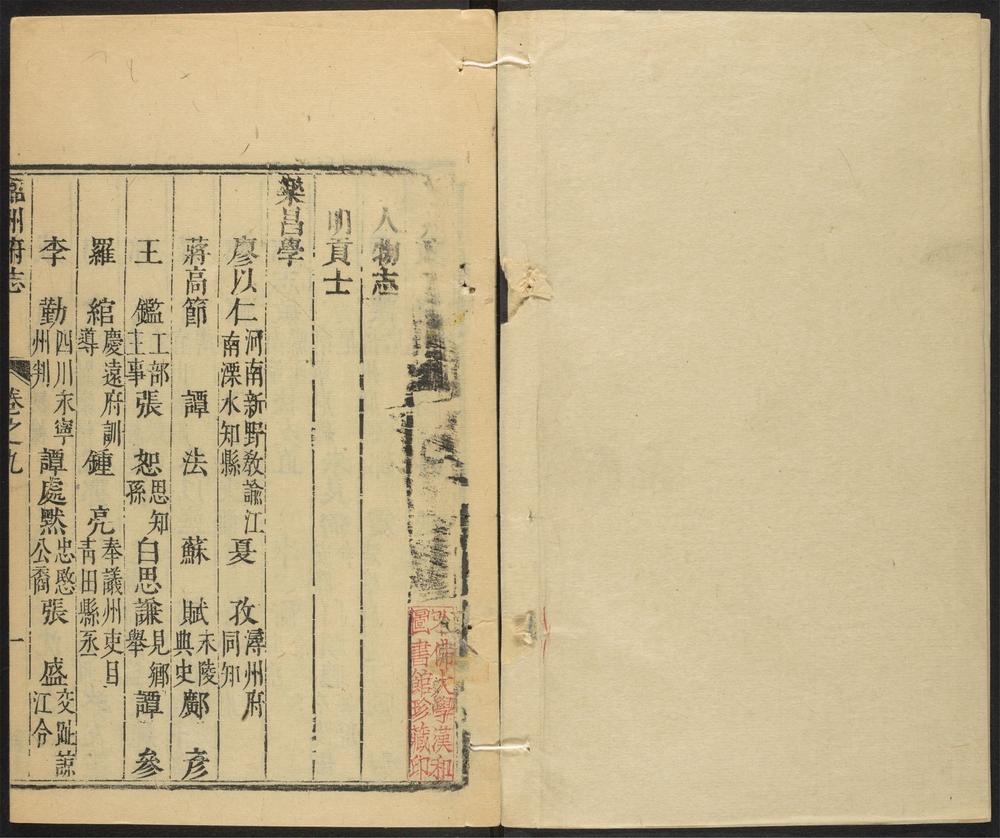 人物志
明貢士
樂昌學
廖以仁 河南新野教諭江南溧水知縣 夏 孜 潯州府同知
蔣高節 譚 法 蘇 賦 末陵典史 鄺 彥
王 鑑 工部主事 張 恕 思知孫 白思謙 見鄉舉 譚 參
羅 綰 慶遠府訓導 鍾 亮 奉議州吏目青田縣丞
李 勤 四川永寧州判 譚處默 忠愍公裔 張 盛 交趾諒江令
州府志 卷之九 一
哈佛大學漢和圖書館珍藏印